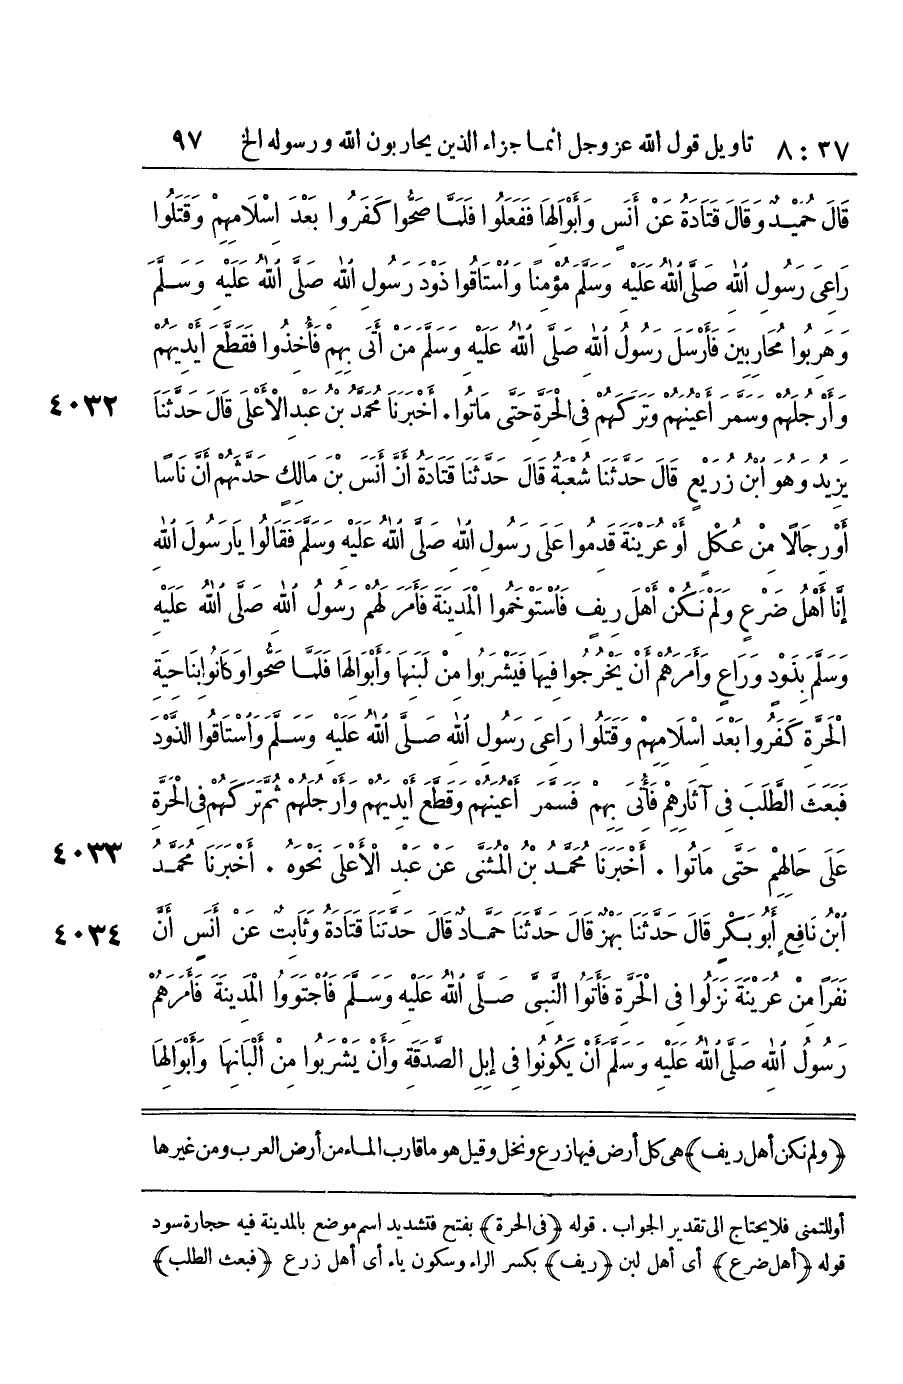 ٨:٣٧ تاويل قول الله عز وجل انما جزاء الذين يحاربون الله ورسوله الخ ٩٧
قَالَ حُمَيْدٌ وَقَالَ قَتَادَةُ عَنْ أَنَسٍ وَأَبْوَالِهَا فَفَعَلُوا فَلَمَّا صَحُّوا كَفَرُوا بَعْدَ اِسْلَامِهِمْ وَقَتَلُوا
رَاعِيَ رَسُولِ اللهِ صَلَّى اللهُ عَلَيْهِ وَسَلَّمَ مُؤْمِنًا وَاسْتَاقُوا ذَوْدَ رَسُولِ اللهِ صَلَّى اللهُ عَلَيْهِ وَسَلَّمَ
وَهَرَبُوا مُحَارِبِينَ فَأَرْسَلَ رَسُولُ اللهِ صَلَّى اللهُ عَلَيْهِ وَسَلَّمَ مَنْ أَتَى بِهِمْ فَأُخِذُوا فَقَطَّعَ أَيْدِيَهُمْ
وَأَرْجُلَهُمْ وَسَمَّرَ أَعْيُنَهُمْ وَتَرَكَهُمْ فِي الْحَرَّةِ حَتَّى مَاتُوا . أَخْبَرَنَا مُحَمَّدُ بْنُ عَبْدِ الْأَعْلَى قَالَ حَدَّثَنَا ٤٠٣٢
يَزِيدُ وَهُوَ ابْنُ زُرَيْعٍ قَالَ حَدَّثَنَا شُعْبَةُ قَالَ حَدَّثَنَا قَتَادَةُ أَنَّ أَنَسَ بْنَ مَالِكٍ حَدَّثَهُمْ أَنَّ نَاسًا
أَوْ رِجَالًا مِنْ عُكْلٍ أَوْ عُرَيْنَةَ قَدِمُوا عَلَى رَسُولِ اللهِ صَلَّى اللهُ عَلَيْهِ وَسَلَّمَ فَقَالُوا يَارَسُولَ اللهِ
إِنَّا أَهْلُ ضَرْعٍ وَلَمْ نَكُنْ أَهْلَ رِيفٍ فَاسْتَوْخَمُوا الْمَدِينَةَ فَأَمَرَ لَهُمْ رَسُولُ اللهِ صَلَّى اللهُ عَلَيْهِ
وَسَلَّمَ بِذَوْدٍ وَرَاعٍ وَأَمَرَهُمْ أَنْ يَخْرُجُوا فِيهَا فَيَشْرَبُوا مِنْ لَبَنِهَا وَأَبْوَالِهَا فَلَمَّا صَحُّوا وَكَانُوا بِنَاحِيَةِ
الْحَرَّةِ كَفَرُوا بَعْدَ اِسْلَامِهِمْ وَقَتَلُوا رَاعِيَ رَسُولِ اللهِ صَلَّى اللهُ عَلَيْهِ وَسَلَّمَ وَاسْتَاقُوا الذَّوْدَ
فَبَعَثَ الطَّلَبَ فِي آثَارِهِمْ فَأُتِيَ بِهِمْ فَسَمَّرَ أَعْيُنَهُمْ وَقَطَّعَ أَيْدِيَهُمْ وَأَرْجُلَهُمْ ثُمَّ تَرَكَهُمْ فِي الْحَرَّةِ
عَلَى حَالِهِمْ حَتَّى مَاتُوا . أَخْبَرَنَا مُحَمَّدُ بْنُ الْمُثَنَّى عَنْ عَبْدِ الْأَعْلَى نَحْوَهُ . أَخْبَرَنَا مُحَمَّدُ ٤٠٣٣
ابْنُ نَافِعٍ أَبُو بَكْرٍ قَالَ حَدَّثَنَا بَهْزٌ قَالَ حَدَّثَنَا حَمَّادٌ قَالَ حَدَّثَنَا قَتَادَةُ وَثَابِتٌ عَنْ أَنَسٍ أَنَّ ٤٠٣٤
نَفَرًا مِنْ عُرَيْنَةَ نَزَلُوا فِي الْحَرَّةِ فَأَتَوُا النَّبِيَّ صَلَّى اللهُ عَلَيْهِ وَسَلَّمَ فَاجْتَوَوُا الْمَدِينَةَ فَأَمَرَهُمْ
رَسُولُ اللهِ صَلَّى اللهُ عَلَيْهِ وَسَلَّمَ أَنْ يَكُونُوا فِي إِبِلِ الصَّدَقَةِ وَأَنْ يَشْرَبُوا مِنْ أَلْبَانِهَا وَأَبْوَالِهَا
﴿ولم نكن أهل ريف﴾ هى كل أرض فيها زرع ونخل وقيل هو ما قارب الماء من أرض العرب ومن غيرها
أو للتمنى فلا يحتاج الى تقدير الجواب . قوله ﴿فى الحرة﴾ بفتح فتشديد اسم موضع بالمدينة فيه حجارة سود
قوله ﴿أهل ضرع﴾ أى أهل لبن ﴿ريف﴾ بكسر الراء وسكون ياء أى أهل زرع ﴿فبعث الطلب﴾